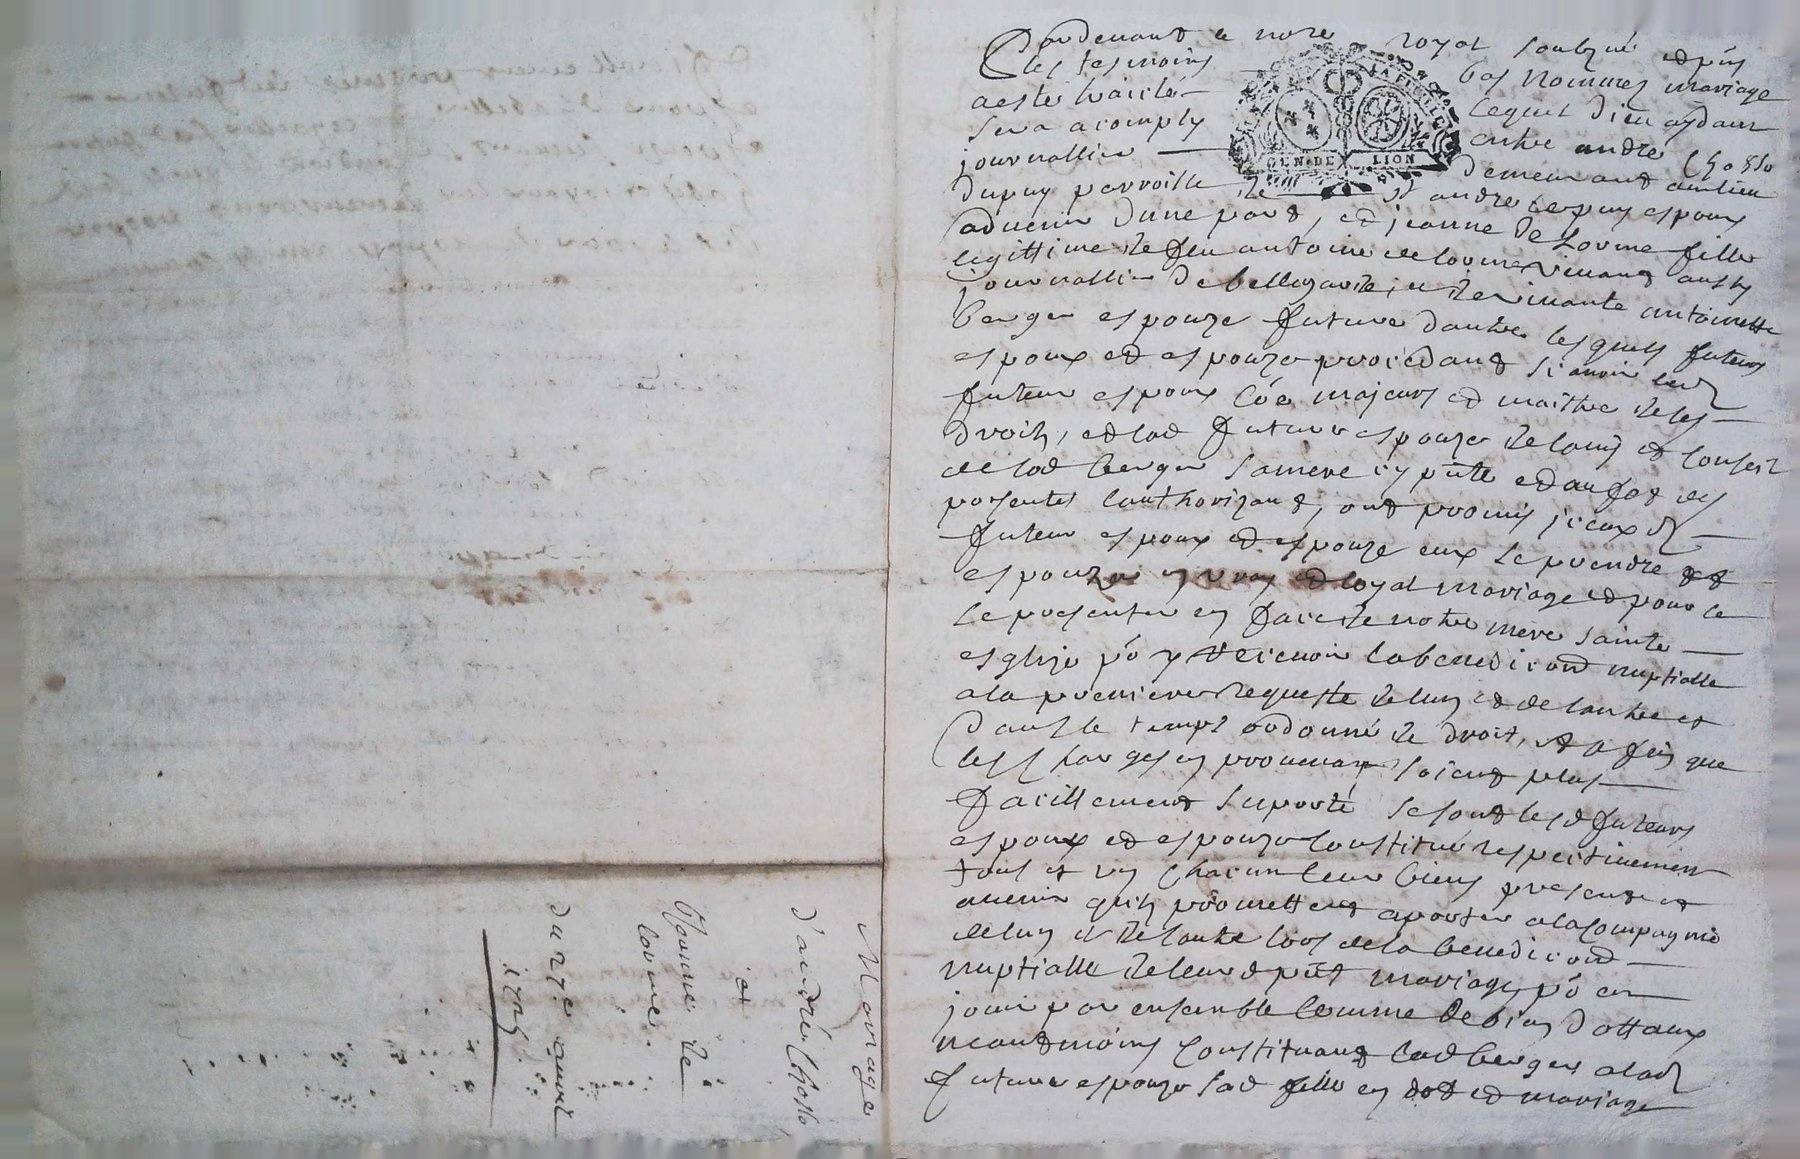 Pardevant le no.re royal soubzné et pñs
les tesmoins bas nommez mariage
a esté traicté lequel Dieu aydant
sera acomply entre andré Chosso
journallier demeurant au lieu
dupuy parroisse de st andre le puy espoux
aduenir d'une part, et jeanne De Lorme fille
legittime de feu antoine delorme viuant aussy
journallier De bellegarde, et de viuante antoinette
berger espouze future dautre lesquels futeurs
espoux et espouze procedant sçauoir led
futeur espoux côe majeurs et maistre de ses
droits, et lad future espouze de lauis et conseil
de lad berger sa mere icy pñte et au fet des
presentes lauthorizant, ont promis iceux d
futeur espoux et espouze eux se prendre et
espouzer en vray et loyal mariage et pour ce
se presenter en face de notre mere sainte
esglize pō y receuoir la benediçōn nuptialle
a la premiere requeste de lun et de lautre et
dans le temps ordonné de droit, et a fin que
les charges en prouenant soient plus
facillement suporté se sont lesd futeurs
espoux et espouze constitué respectiuement
tous et un chacun leur biens presents et
auenir quils promettent aporter a la compagnie
de lun et de lautre lors de la benediçōn
nuptialle de leur d pñt mariage pō en
jouir par ensemble comme De bien dottaux
neantmoins constituant lad berger a lad
future espouze sad fille en dot et mariage
GEN DE LION
Mariage
d'andré Chosso
et
Jeanne de
lorme.
du 27e auril